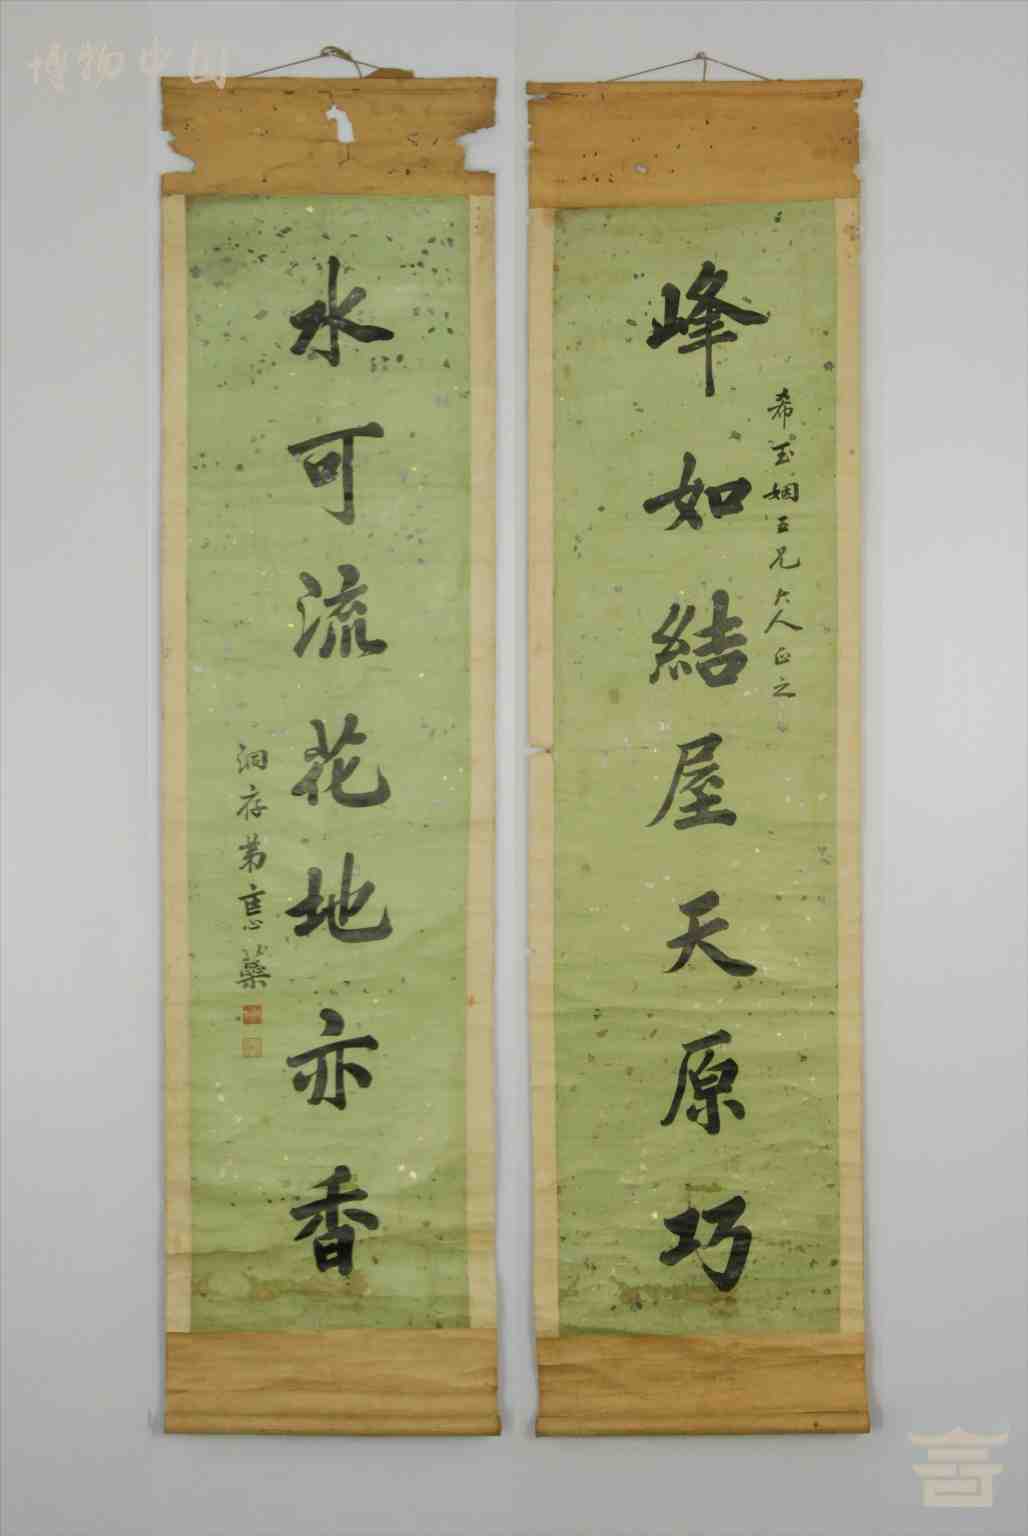 博物中国
峰如結屋天原巧
希玉姻三兄大人正之
水可流花地亦香
洞存弟惠蘗